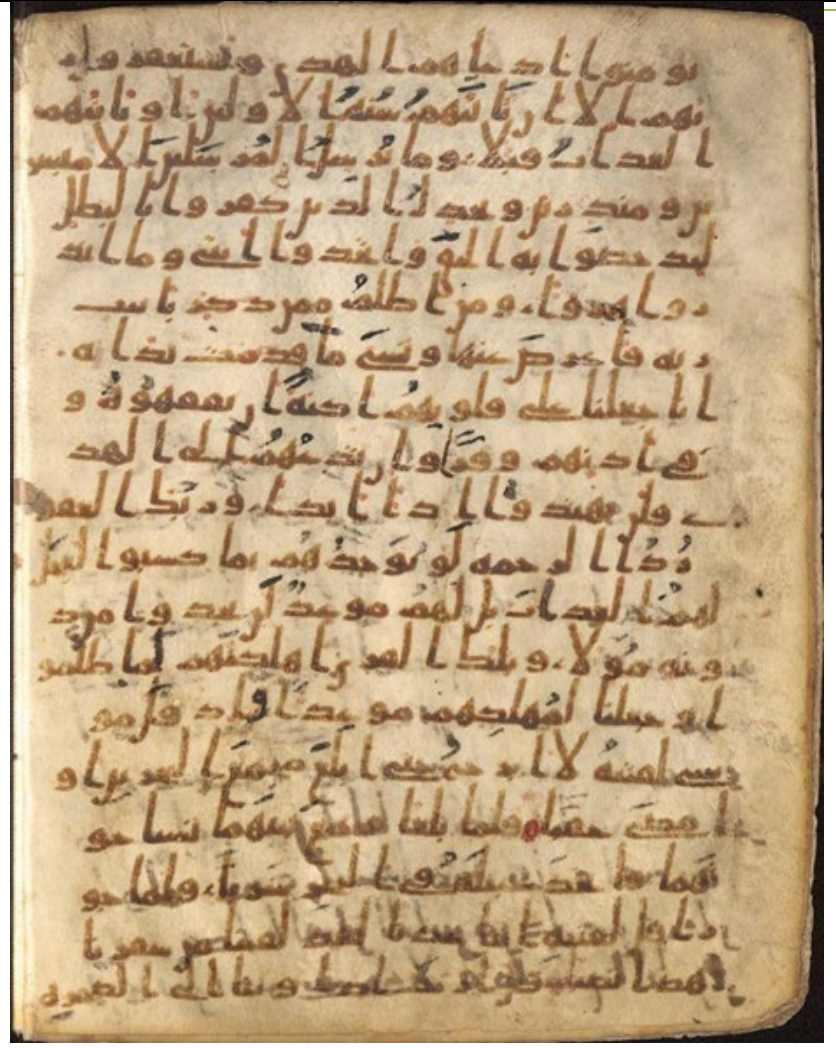 يومنوا اذ جاهم الهدى ويستغفروا ر
بهم الا ان تاتيهم سنة الاولين او ياتيهم
العذاب قبلا وما نرسل المرسلين الا مبشر
ين ومنذرين ويجدل الذين كفروا بالبطل
ليدحضوا به الحق واتخذوا ايتي وما انذ
روا هزوا ومن اظلم ممن ذكر بايت
ربه فاعرض عنها ونسي ما قدمت يداه
انا جعلنا على قلوبهم اكنة ان يفقهوه و
في اذنهم وقرا وان تدعهم الى الهد
ى فلن يهتدوا اذا ابدا وربك الغفو
ر ذوا الرحمه لو يوخذهم بما كسبوا لعجل
لهم العذاب بل لهم موعد لن يجدوا من د
ونه مولا وتلك القرى اهلكنهم لما ظلمو
ا وجعلنا لمهلكهم موعدا واذ قل مو
سى لفتيه لا ابرح حتى ابلغ مجمع البحرين او
امضي حقبا فلما بلغا مجمع بينهما نسيا حو
تهما فاتخذ سبيله في البحر سربا فلما جو
زا قل لفتيه اتنا غدانا لقد لقينا من سفرنا
هذا نصبا قل اريت اذ اوينا الى الصخره